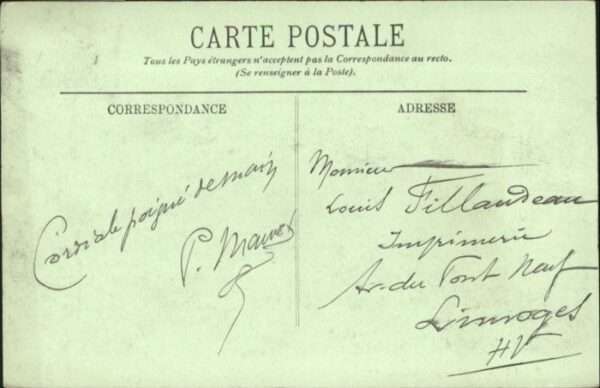 CARTE POSTALE
Tous les Pays étrangers n'acceptent pas la Correspondance au recto.
(Se renseigner à la Poste).
CORRESPONDANCE
ADRESSE
Cordiale poigné de main
P.
Monsieur
Louis Fillaudeau
Imprimerie
Av. du Pont Neuf
Limoges
HV